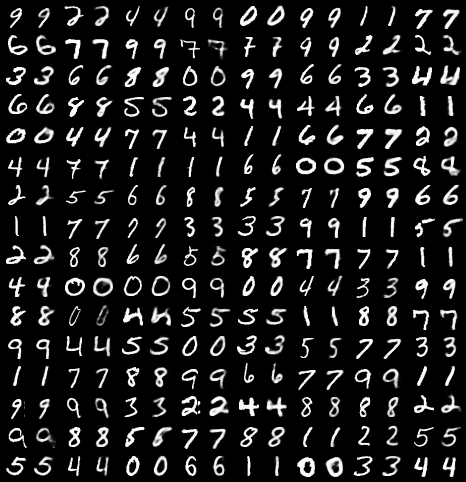 9 9 2 2 4 4 9 9 0 0 9 9 1 1 7 7
6 6 7 7 9 9 7 7 7 7 9 9 2 2 2 2
3 3 6 6 8 8 0 0 9 9 6 6 3 3 4 4
6 6 8 8 5 5 2 2 4 4 4 4 6 6 1 1
0 0 4 4 7 7 4 4 1 1 6 6 7 7 2 2
4 4 7 7 1 1 1 1 6 6 0 0 5 5 8 8
2 2 5 5 6 6 8 8 5 5 7 7 9 9 6 6
1 1 7 7 9 9 3 3 3 3 9 9 1 1 5 5
2 2 8 8 6 6 5 5 8 8 7 7 7 7 1 1
4 4 0 0 0 0 9 9 0 0 4 4 3 3 9 9
8 8 0 0 4 4 5 5 5 5 1 1 8 8 7 7
9 9 4 4 5 5 0 0 3 3 5 5 7 7 3 3
1 1 7 7 8 8 9 9 6 6 7 7 9 9 1 1
9 9 9 9 3 3 2 2 4 4 8 8 8 8 2 2
9 9 8 8 5 5 7 7 8 8 1 1 2 2 5 5
5 5 4 4 0 0 6 6 1 1 0 0 3 3 4 4